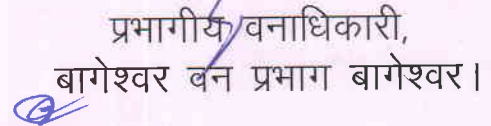 प्रभागीय वनाधिकारी,
बागेश्वर वन प्रभाग बागेश्वर।